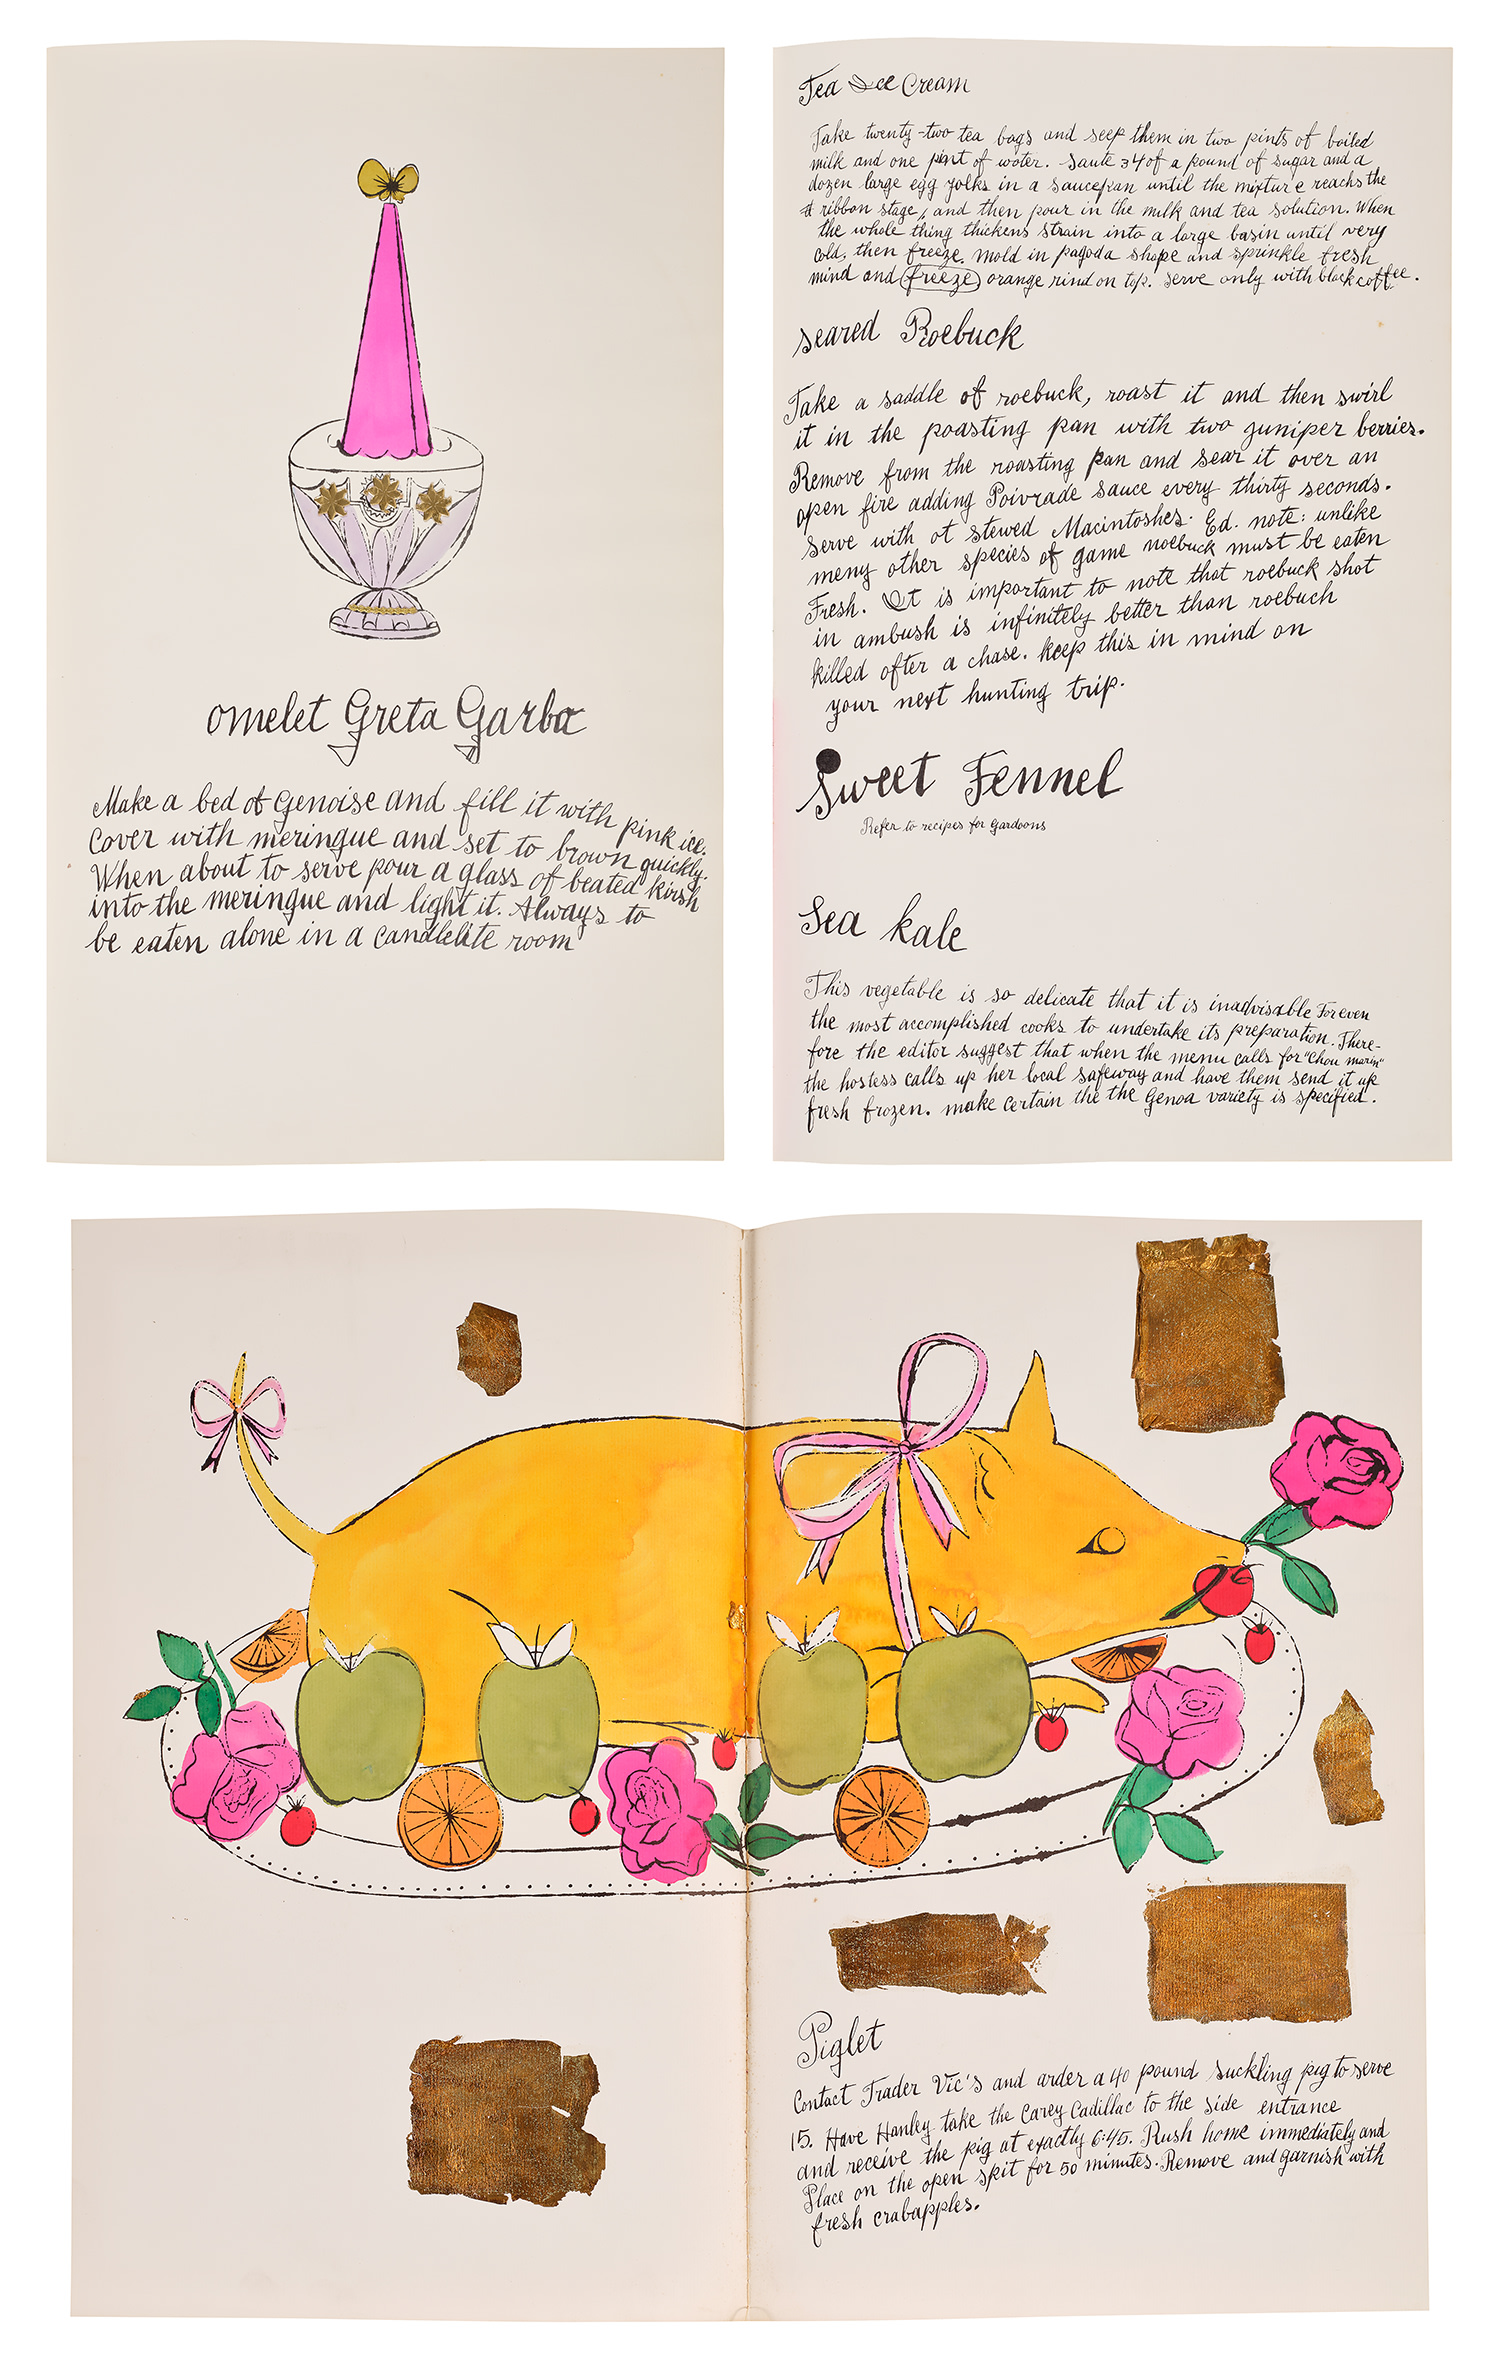 omelet Greta Garbo
Make a bed of Genoise and fill it with pink ice.
Cover with meringue and set to brown quickly.
When about to serve pour a glass of beated kirsh
into the meringue and light it. Always to
be eaten alone in a candlelite room
Tea Ice Cream
Take twenty-two tea bags and seep them in two pints of boiled
milk and one pint of water. Saute 34 of a pound of sugar and a
dozen large egg yolks in a saucepan until the mixture reachs the
ribbon stage, and then pour in the milk and tea solution. When
the whole thing thickens strain into a large basin until very
cold, then freeze. Mold in pagoda shape and sprinkle fresh
mind and freeze orange rind on top. Serve only with black coffee.
seared Roebuck
Take a saddle of roebuck, roast it and then swirl
it in the poasting pan with two juniper berries.
Remove from the roasting pan and sear it over an
open fire adding Poivrade Sauce every thirty seconds.
Serve with ot stewed Macintoshes. Ed. note: unlike
meny other species of game roebuck must be eaten
Fresh. It is important to note that roebuck shot
in ambush is infinitely better than roebuch
killed after a chase. keep this in mind on
your next hunting trip.
Sweet Fennel
Refer to recipes for Gardoons
Sea kale
This vegetable is so delicate that it is inadvisable For even
the most accomplished cooks to undertake its preparation. There-
fore the editor suggest that when the menu calls for "Chou marin"
the hostess calls up her local safeway and have them send it up
fresh frozen. make certain the the Genoa variety is specified.
Piglet
Contact Trader Vic's and order a 40 pound suckling pig to serve
15. Have Hanley take the Carey Cadillac to the side entrance
and receive the pig at exactly 6:45. Rush home immediately and
Place on the open spit for 50 minutes. Remove and garnish with
fresh crabapples.